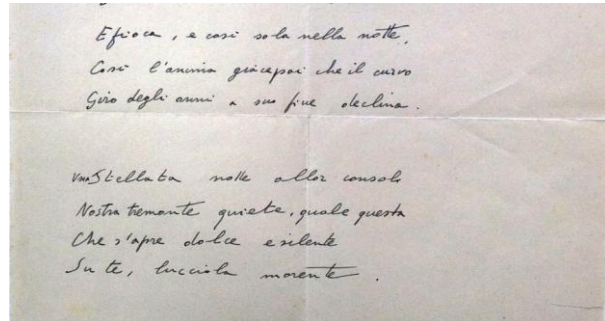 E fioca, e così sola nella notte,
Così l'anima giace poi che il curvo
Giro degli anni a suo fine declina.
Una Stellata notte allor consoli
Nostra tremante quiete, quale questa
Che s'apre dolce e silente
Su te, lucciola morente.